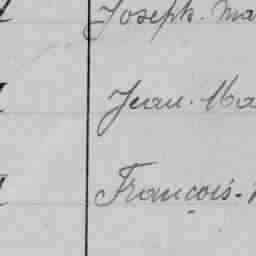 Joseph. Ma
Jean. Ma
François.